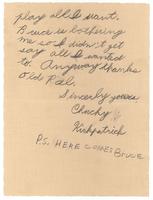 play all I want.
Bruce is bothering
me so I didn't get
say all I wanted
to. Anyway thanks
Old Pal.
Sincerly yours
Chucky
Kirkpatrick
P.S. HERE COMES BRUCE